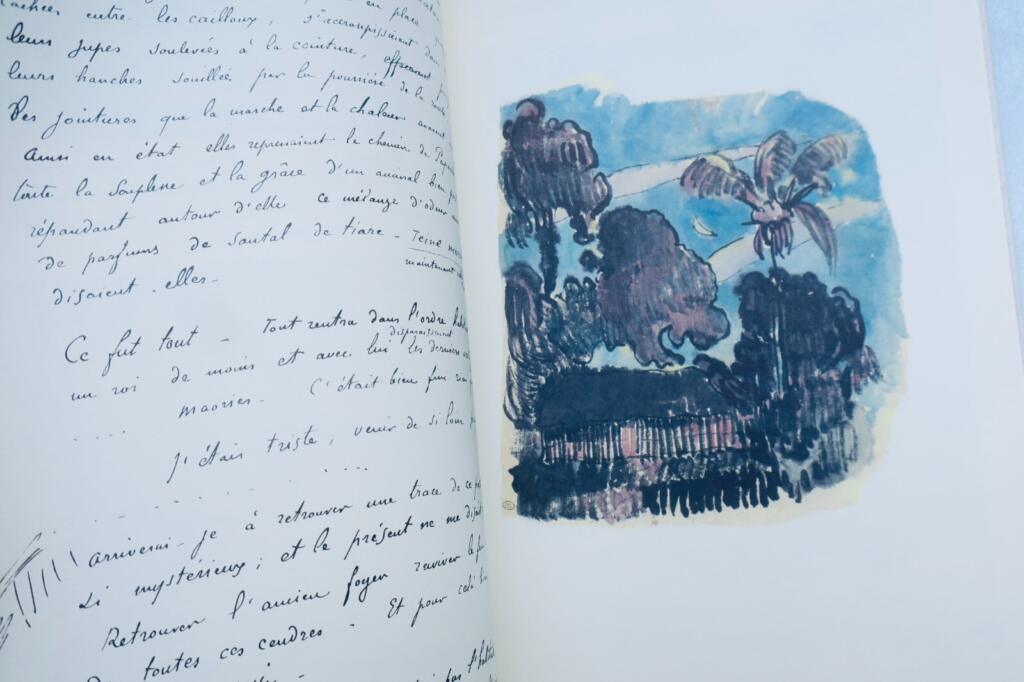 cachées entre les cailloux, s'accroupissaient dans
leurs jupes soulevées à la ceinture, effaçant
leurs hanches souillées par la poussière de la route
Des jointures que la marche et la chaleur avaient
Ainsi en état elles reprenaient le chemin de
toute la souplesse et la grâce d'un animal bien
répandant autour d'elle ce mélange d'odeur
de parfums de santal de tiare - Teine
maintenant
disaient - elles -
Ce fut tout - Tout rentra dans l'ordre
disparaissaient
un roi de moins et avec lui les derniers
maories - C'était bien fini
.... J'étais triste, venir de si loin
....
arriverai-je à retrouver une trace de ce
si mystérieux; et le présent ne me disait
Retrouver l'ancien foyer raviver le feu
toutes ces cendres - Et pour celà